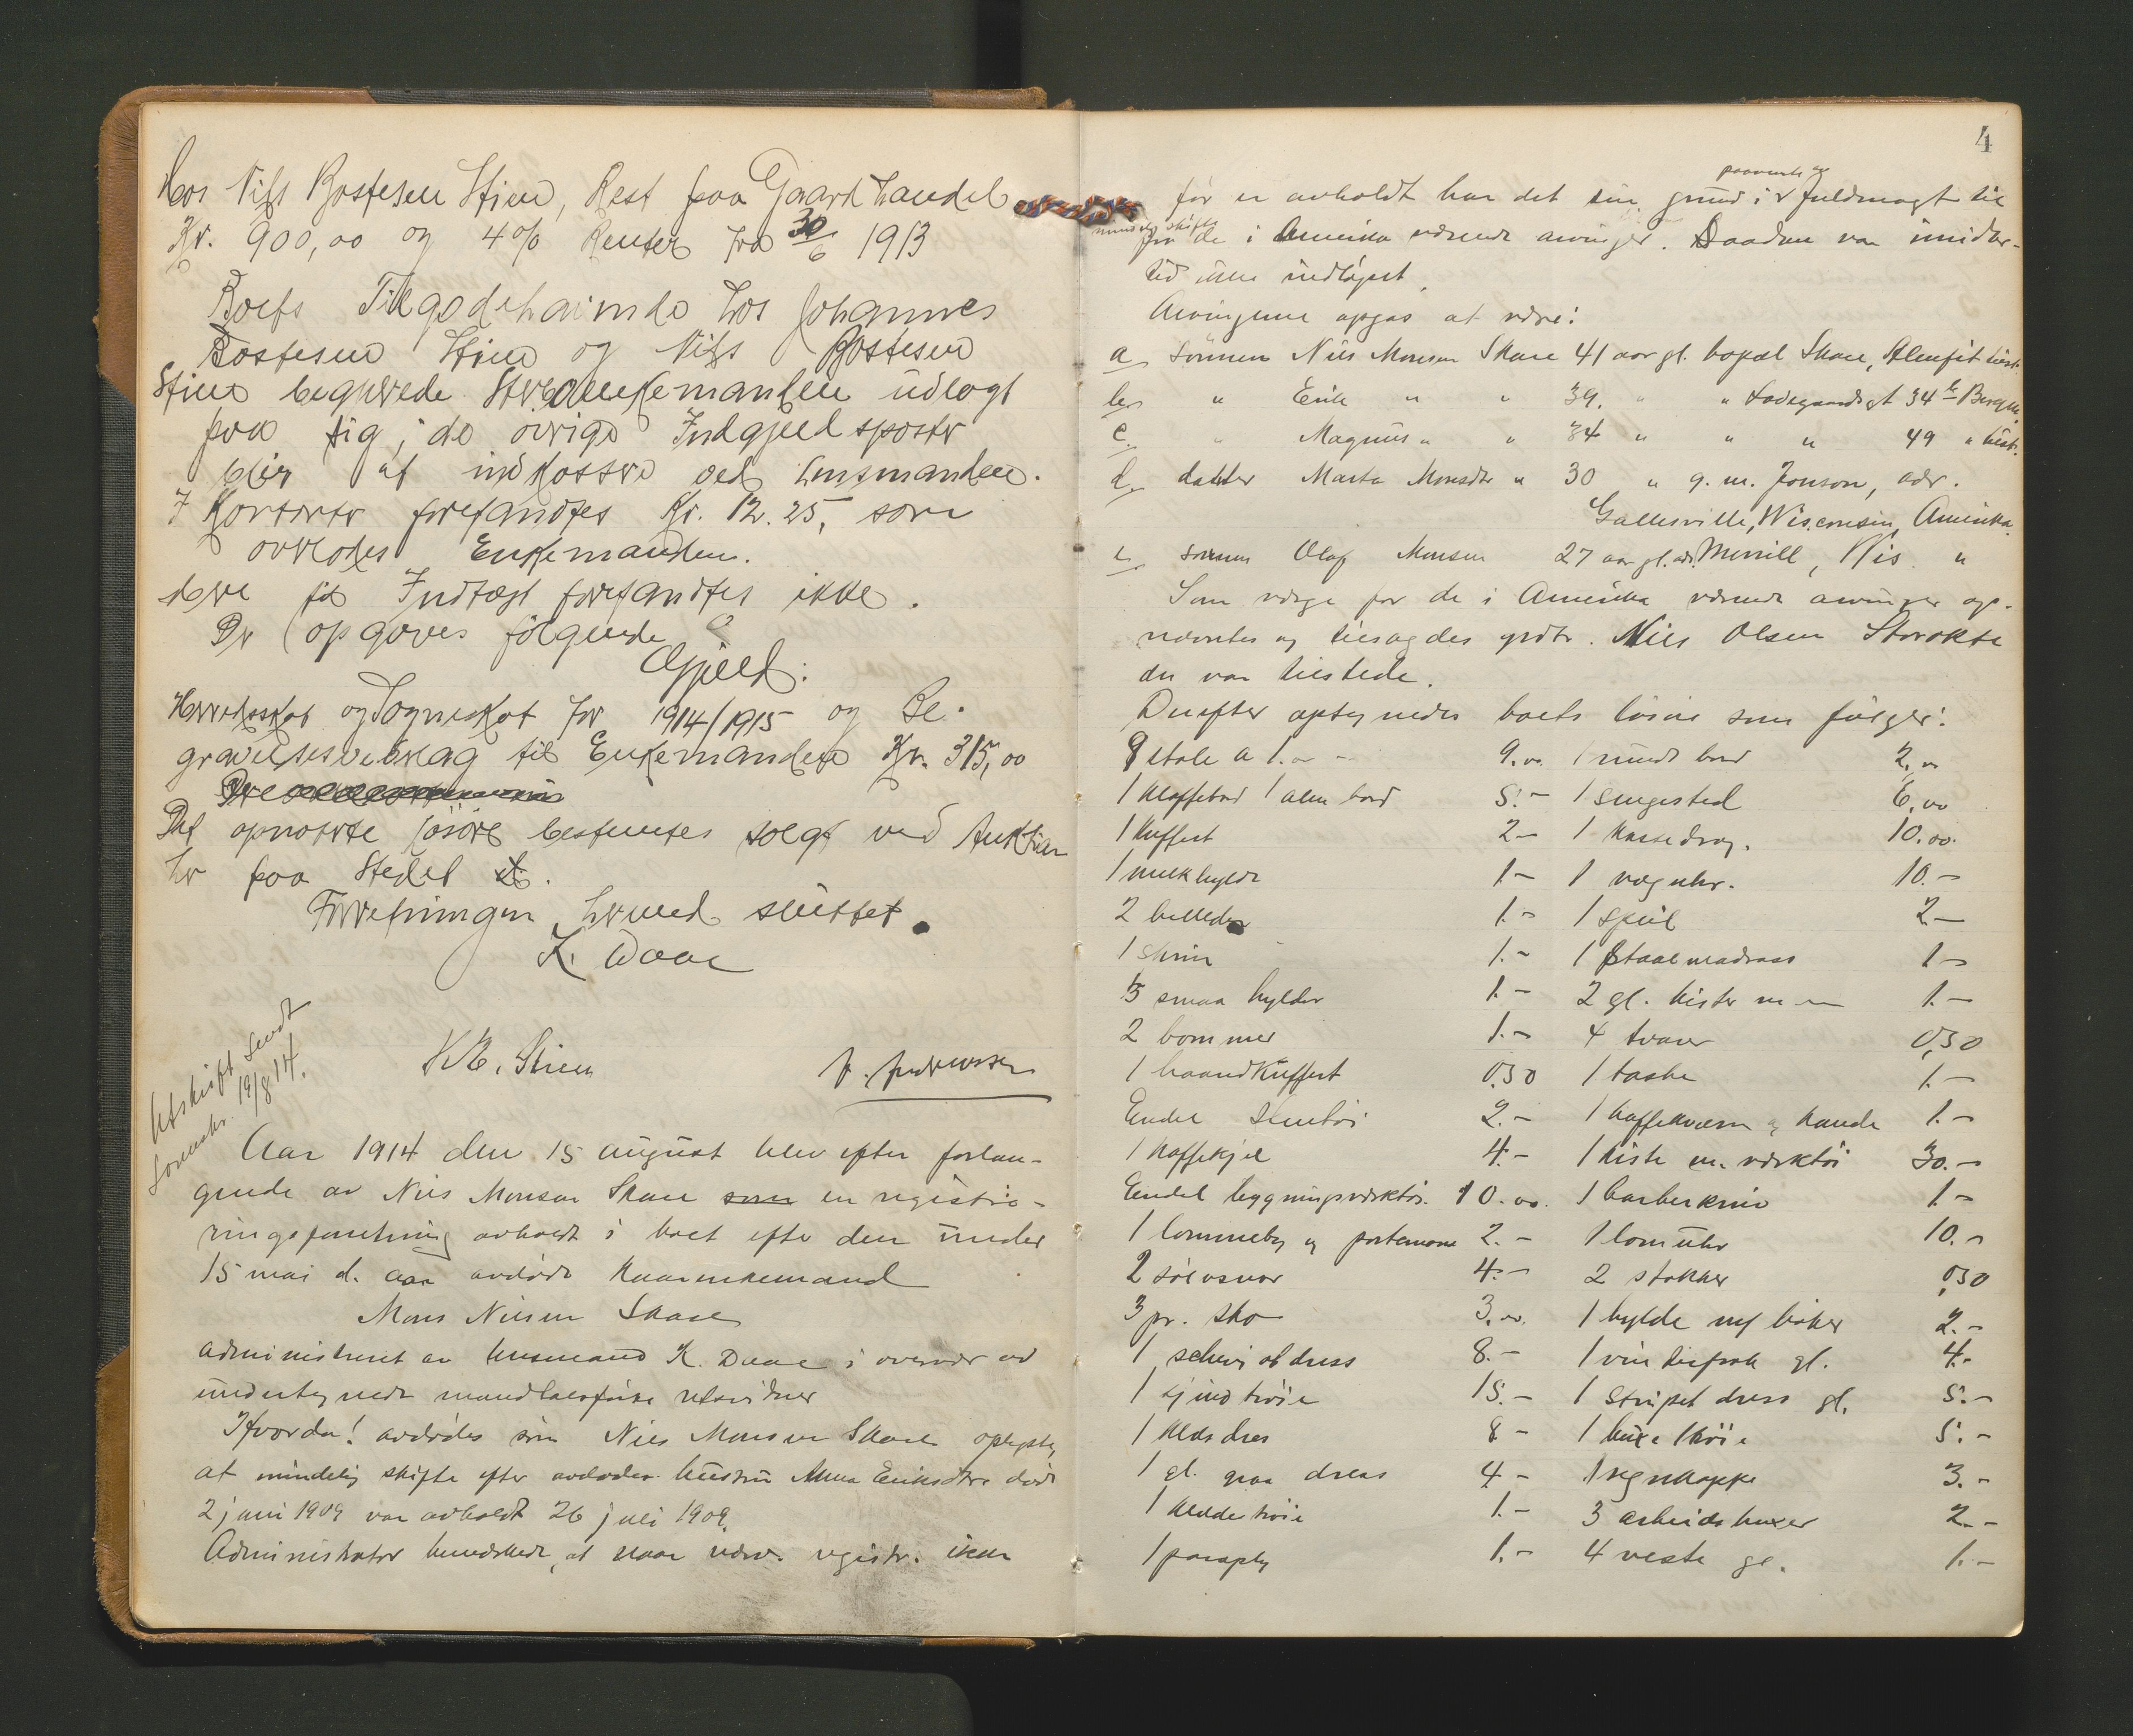 Hos Nils Bostesen Stien, Rest paa Gaard handel
Kr. 900,00 og 4% Renter fra 30/6 1913
Boets Tilgodehavende hos Johannes
Bostesen Stien og Nils Bostesen
Stien begjærede Enkemanden udlagt
paa sig; de øvrige Indgjeldsposter
blir at indkassere ved Lensmanden.
I Kontanter forefandtes Kr. 12.25, som
overlodes Enkemanden.
Mere til Indtægt forefandtes ikke.
Der opgaves følgende
Gjæld:
Herredsskat og Sogneskat for 1914/1915 og Be-
gravelsesbidrag til Enkemanden Kr. 315,00
Det opnoterte løsøre bestemtes solgt ved Auktion
her paa Stedet
Forretningen hermed sluttet.
K. Daae
Utskrift sendt
Sorenskr. 19/8 14.
Aar 1914 den 15 august blev efter forlan-
gende av Nils Monsen Skare som en registre-
ringsforretning avholdt i boet efter den under
15 mai d. aar avdøde kaarenkemand
Mons Nilsen Skare
administreret av lensmand K. Daae i overvær av
undertegnede mandtalsførte retsvidner
Hvorda! avdødes søn Nils Monsen Skare oplyste,
at mindelig skifte efter avdødes hustru Anna Eriksdtr. død
2 juni 1909 var avholdt 26 juli 1909.
Administrator bemerkede, at naar nærv. registr. ikke
4
paavente av
før er avholdt har det sin grund i fuldmagt til
mindelig skifte
fra de i Amerika værende arvinger. Saadan var imidler-
tid ikke indløpet.
Arvingerne opgas at være:
a sønnen Nils Monsen Skare 41 aar gl. bopæl Skare, tilst.
b. " Erik " " 39. " " Ladegaardsgt 34 Bergen
c. " Magnus " " 34 " " " 49 " tilst.
d. datter Marta Monsdtr " 30 " g. m. Jonson, adr.
Gallesville, Wisconsin, Amerika.
e sønnen Olaf Monsen 27 aar gl. adr. Merrill, Wis. "
Som værge for de i Amerika værende arvinger op-
nævntes og tilsagdes grdbr. Nils Olsen
der var tilstede.
Derefter optegnedes boets løsøre som følger:
9 stole a 1.00 - 9.00 1 rundt bord 2,00
1 klaffebord 1 alm bord 5.- 1 sengested 6,00
1 kuffert 2- 1 kassedrag. 10.00.
1 melkhylde 1- 1 væguhr. 10.-
2 billeder 1.- 1 speil 2-
1 skrin 1.- 1 staalmadrass 1-
3 smaa hylder 1.- 2 gl. kister m m 1.-
2 bommer 1.- 4 tvarer 0,50
1 haandkuffert 0.50 1 taske 1.-
Endel stentøi 2.- 1 kaffekværn og kande 1.-
1 kaffekjel 4.- 1 kiste m. værktøi 30.-
Endel bygningsværktøi. 10.00. 1 barberkniv 1.-
1 lommebog og portemone 2.- 1 lomuhr 10.-
2 sølvsnor 4.- 2 stokker ,050
3 pr. sko 3.00. 1 hylde m/ bøker 2.-
1 scheviotdress 8.- 1 vinterfrak gl. 4.-
1 skindtrøie 15.- 1 stripet dress gl. 5.-
1 klædsdres 8- 1 buxe 1 trøie 5.-
1 gl. graa dress 4- 1 regnkappe 3.-
1 kledde trøie 1.- 3 arbeidsbuxer 2.-
1 paraply 1.- 4 veste gl. 1.-